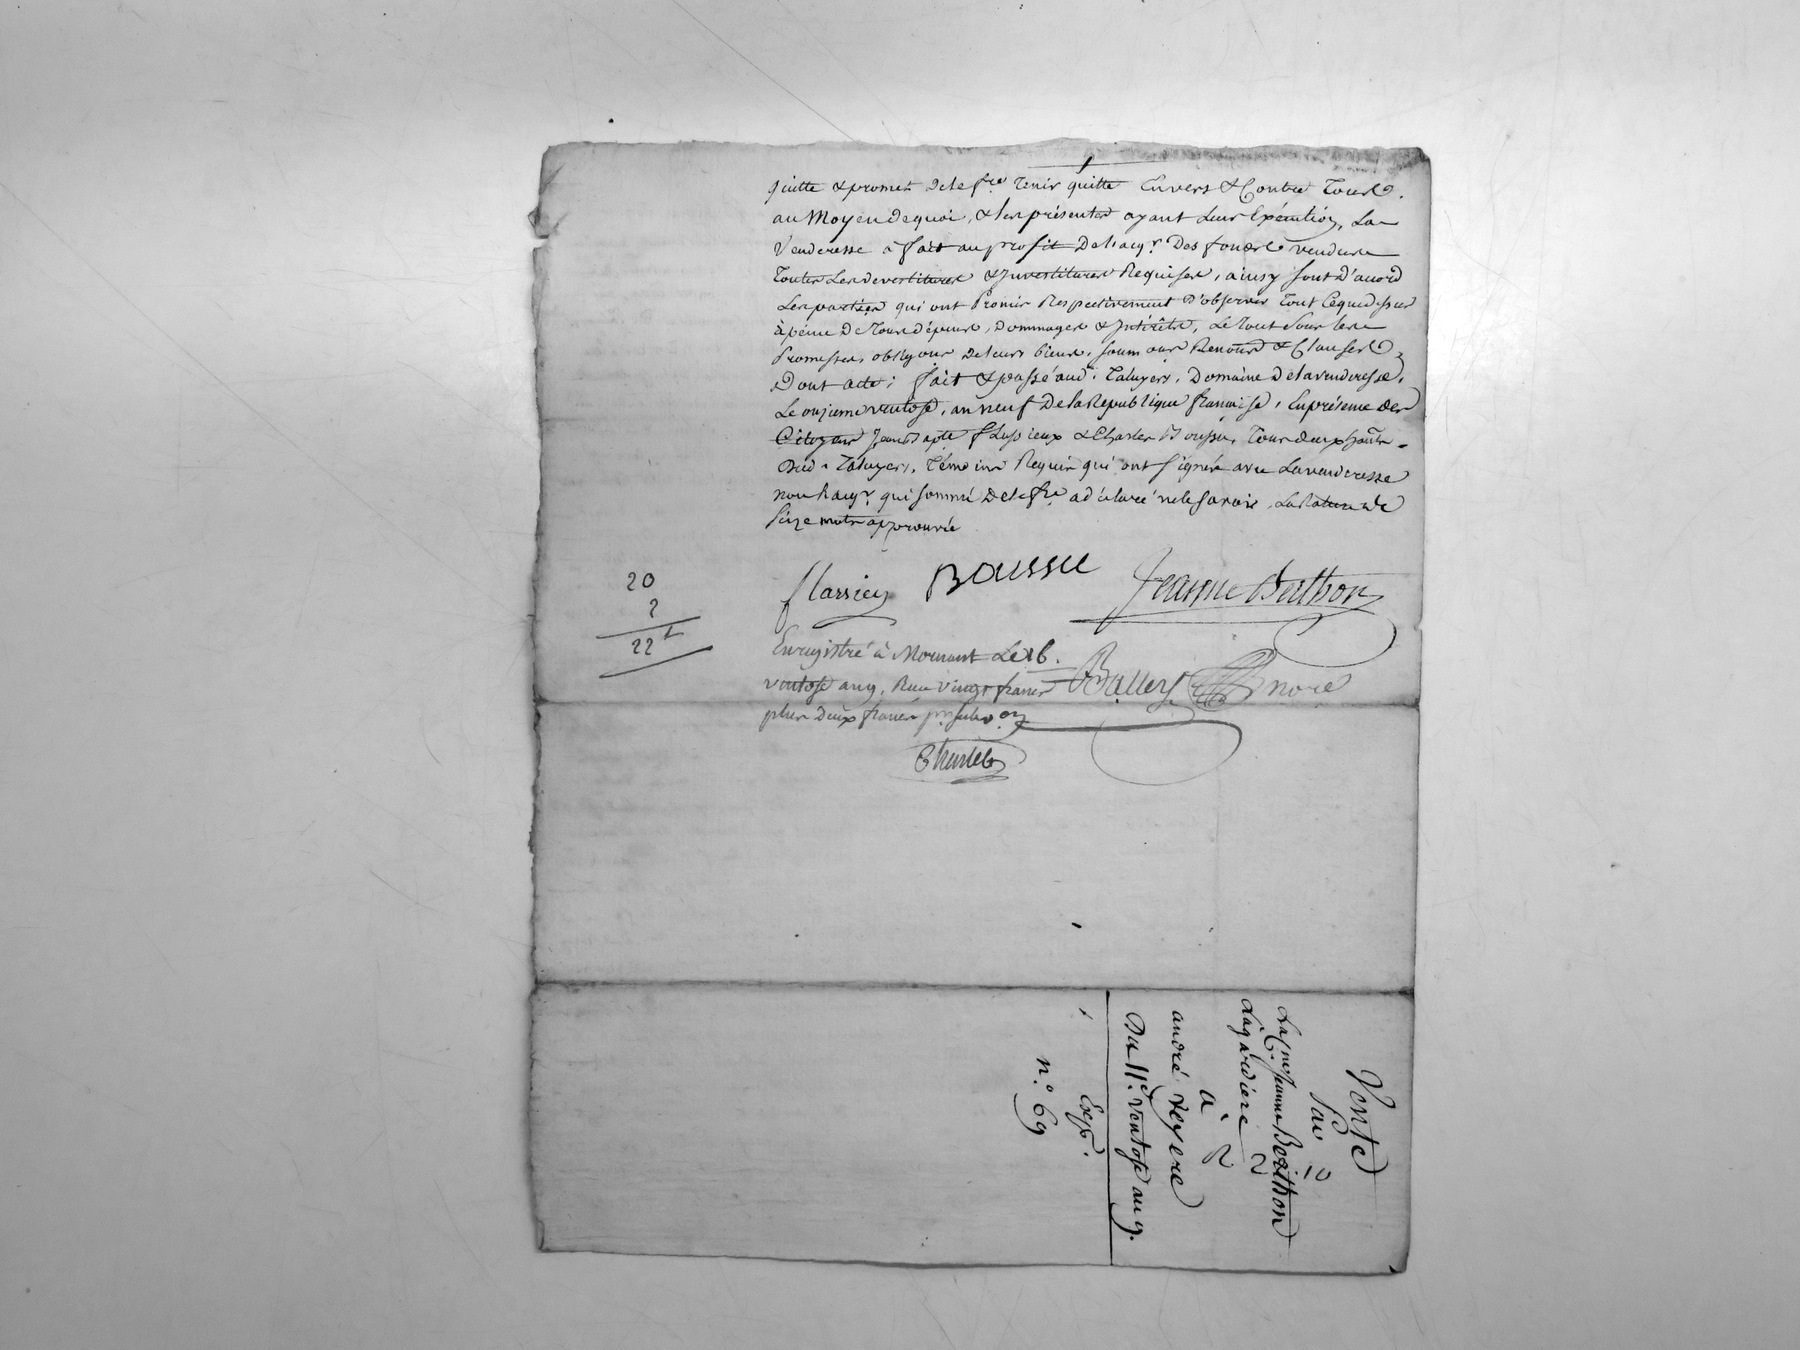 quitte & promet de le f.re tenir quitte Envers & Contre Tous.
au Moyen de quoi, & les présentes ayant Leur Exécution, La
Venderesse a fait au profit de l'acq.r Des fonds vendus
Toutes Les devestitures & Investitures Requises, ainsy sont d'acord
Les parties qui ont Promis Respectivement d'observer Tout Ce que dessus
à peine De Tous dépens, Dommages & Intérêts, Le Tout Sous les
Promesses, oblig.ons de leurs biens, soum.ons Renons & Clauses,
Dont acte; fait & passé aud. Taluyers, Domaine de la venderesse,
Le onzieme ventose, an neuf De la Republique française, En présence des
Citoyens Jean B apte & Charles Boussu, Tous deux
Dud. Taluyers, Témoins Requis qui ont signés avec La venderesse
non l'acq.r qui sommé De le f.re a déclaré ne le savoir, La Rature de
seize mots approuvée
20
2
22
Boussu
Jeanne Berthon
Enregistré à Mornant Le 16.
ventose an 9, Reçu vingt francs
plus Deux francs p.r subv.on
nore
Vente
Par
La C.ne Jeanne Berthon
Lagardiere
à
andré
Du 11.e Ventose an 9.
Exp.
n.o 69